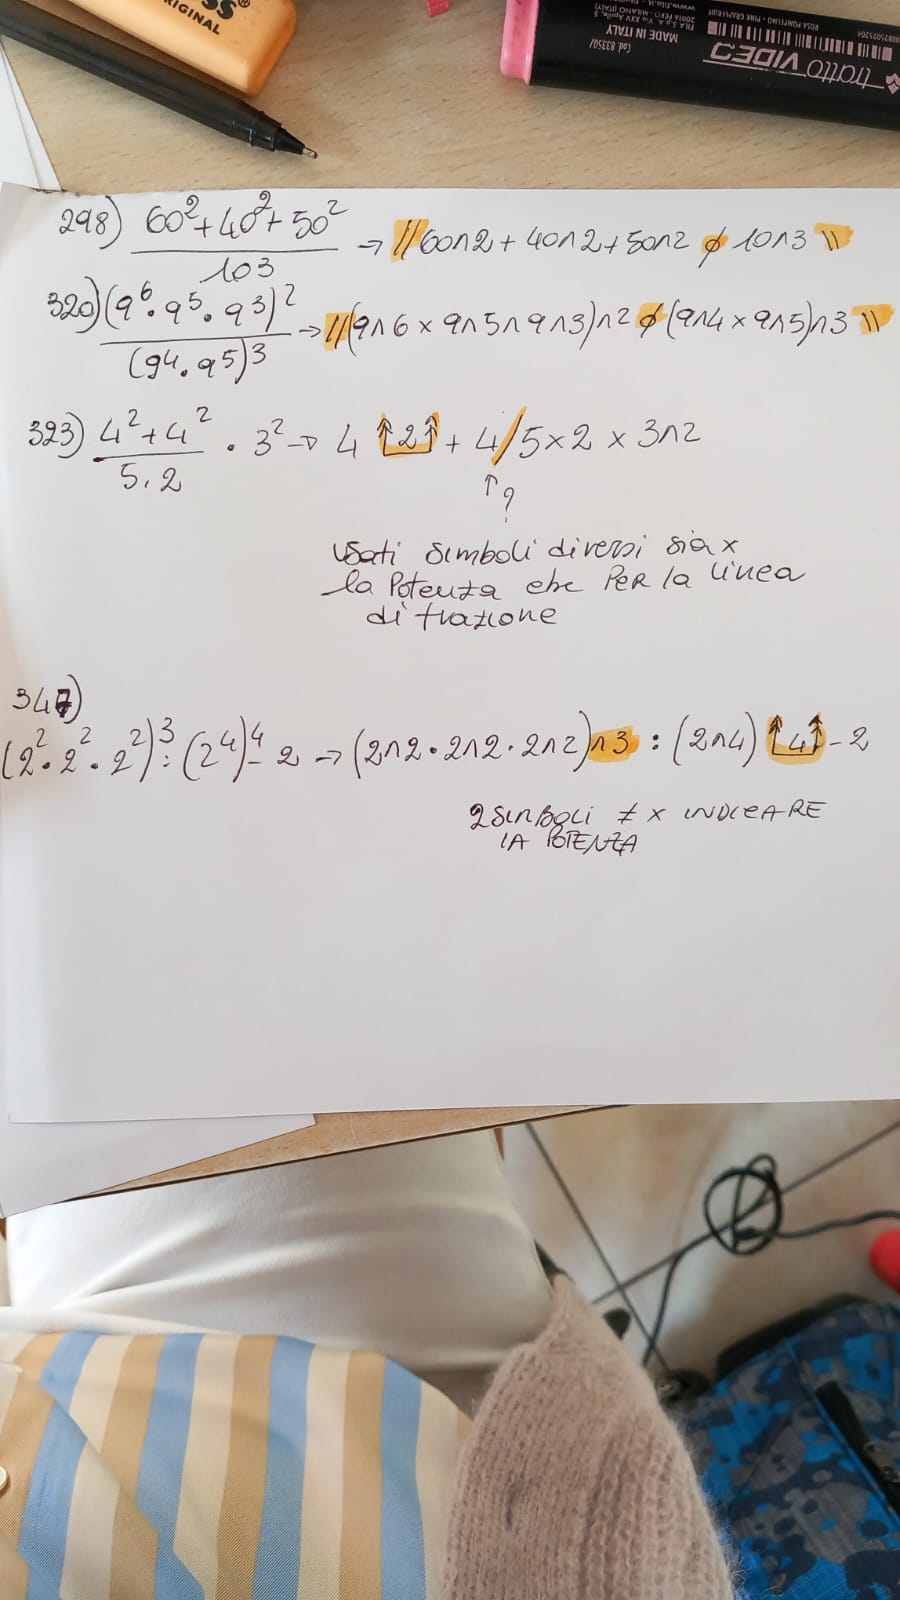 ORIGINAL
Cod. 833507
MADE IN ITALY
tratto VIDEO
298) 60²+40²+50² / 103 → //60∧2 + 40∧2 + 50∧2 ∮ 10∧3 \\
320) (9⁶·9⁵·9³)² / (94·9⁵)³ → //(9∧6 × 9∧5∧9∧3)∧2 ∮ (9∧4 × 9∧5)∧3 \\
323) 4²+4² / 5.2 · 3² → 4 ↑2↑ + 4/5×2 × 3∧2
↑?
usati simboli diversi sia x
la potenza che PER la linea
di frazione
347)
(2²·2²·2²)³:(2⁴)⁴-2 → (2∧2·2∧2·2∧2)∧3 : (2∧4) ↑4↑-2
2 SIMBOLI ≠ x INDICARE
LA POTENZA